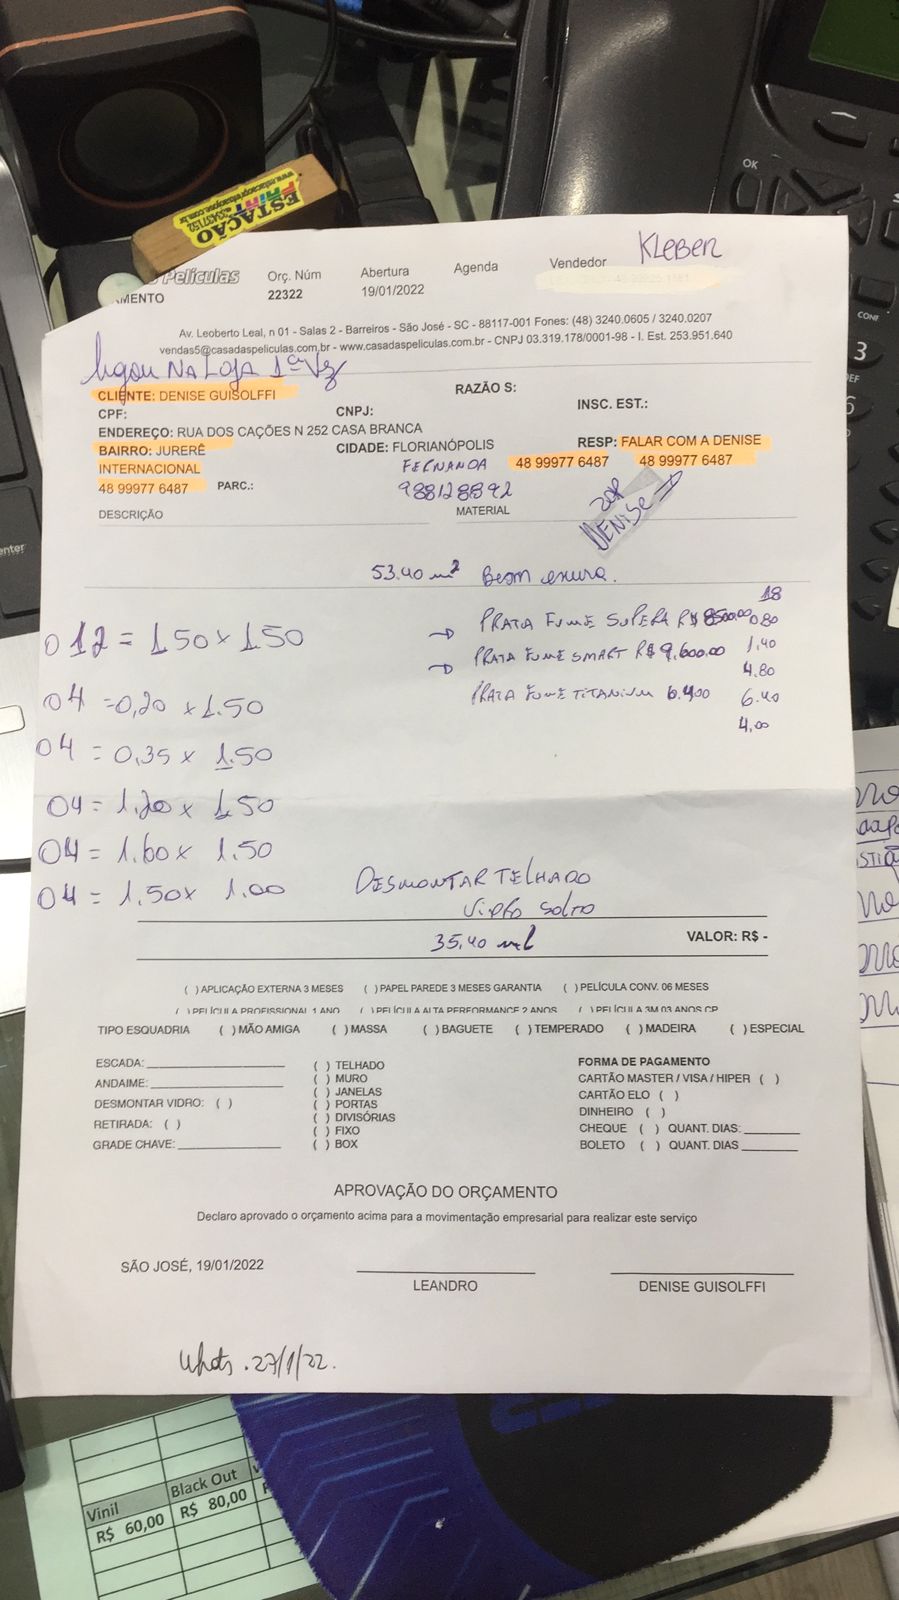 ESTAÇÃO
PRINT
Películas
Orç. Núm
Abertura
Agenda
Vendedor
KLEBER
AMENTO
22322
19/01/2022
Av. Leoberto Leal, n 01 - Salas 2 - Barreiros - São José - SC - 88117-001 Fones: (48) 3240.0605 / 3240.0207
vendas5@casadaspeliculas.com.br - www.casadaspeliculas.com.br - CNPJ 03.319.178/0001-98 - I. Est. 253.951.640
ligou NA LOJA 1ª Vez
CLIENTE: DENISE GUISOLFFI
RAZÃO S:
CPF:
CNPJ:
INSC. EST.:
ENDEREÇO: RUA DOS CAÇÕES N 252 CASA BRANCA
BAIRRO: JURERÊ
CIDADE: FLORIANÓPOLIS
RESP: FALAR COM A DENISE
INTERNACIONAL
FERNANDA
48 99977 6487
48 99977 6487
48 99977 6487
PARC.:
988128892
DENISE
DESCRIÇÃO
MATERIAL
53.40 m²
18
PRATA FUME SUPERA R$ 8500,00
0,80
012 = 1.50 x 1.50
PRATA FUME SMART R$ 9,600,00
1,40
4.80
04 = 0,20 x 1.50
PRATA FUME TITANIUM 6.400
6.40
4,00
04 = 0,35 x 1.50
04 = 1.20 x 1.50
04 = 1.60 x 1.50
04 = 1.50 x 1.00
DESMONTAR TELHADO
VIDRO SOLTO
35,40
VALOR: R$ -
( ) APLICAÇÃO EXTERNA 3 MESES ( ) PAPEL PAREDE 3 MESES GARANTIA ( ) PELÍCULA CONV. 06 MESES
( ) PELÍCULA PROFISSIONAL 1 ANO ( ) PELÍCULA ALTA PERFORMANCE 2 ANOS ( ) PELÍCULA 3M 03 ANOS CP
TIPO ESQUADRIA ( ) MÃO AMIGA ( ) MASSA ( ) BAGUETE ( ) TEMPERADO ( ) MADEIRA ( ) ESPECIAL
ESCADA:
( ) TELHADO
FORMA DE PAGAMENTO
( ) MURO
CARTÃO MASTER / VISA / HIPER ( )
ANDAIME:
( ) JANELAS
CARTÃO ELO ( )
DESMONTAR VIDRO: ( )
( ) PORTAS
DINHEIRO ( )
RETIRADA: ( )
( ) DIVISÓRIAS
CHEQUE ( ) QUANT. DIAS:
( ) FIXO
GRADE CHAVE:
( ) BOX
BOLETO ( ) QUANT. DIAS
APROVAÇÃO DO ORÇAMENTO
Declaro aprovado o orçamento acima para a movimentação empresarial para realizar este serviço
SÃO JOSÉ, 19/01/2022
LEANDRO
DENISE GUISOLFFI
Whats. 27/1/22.
Vinil
Black Out
R$ 60,00
R$ 80,00
OK
CONF
3
DEF
6
enter